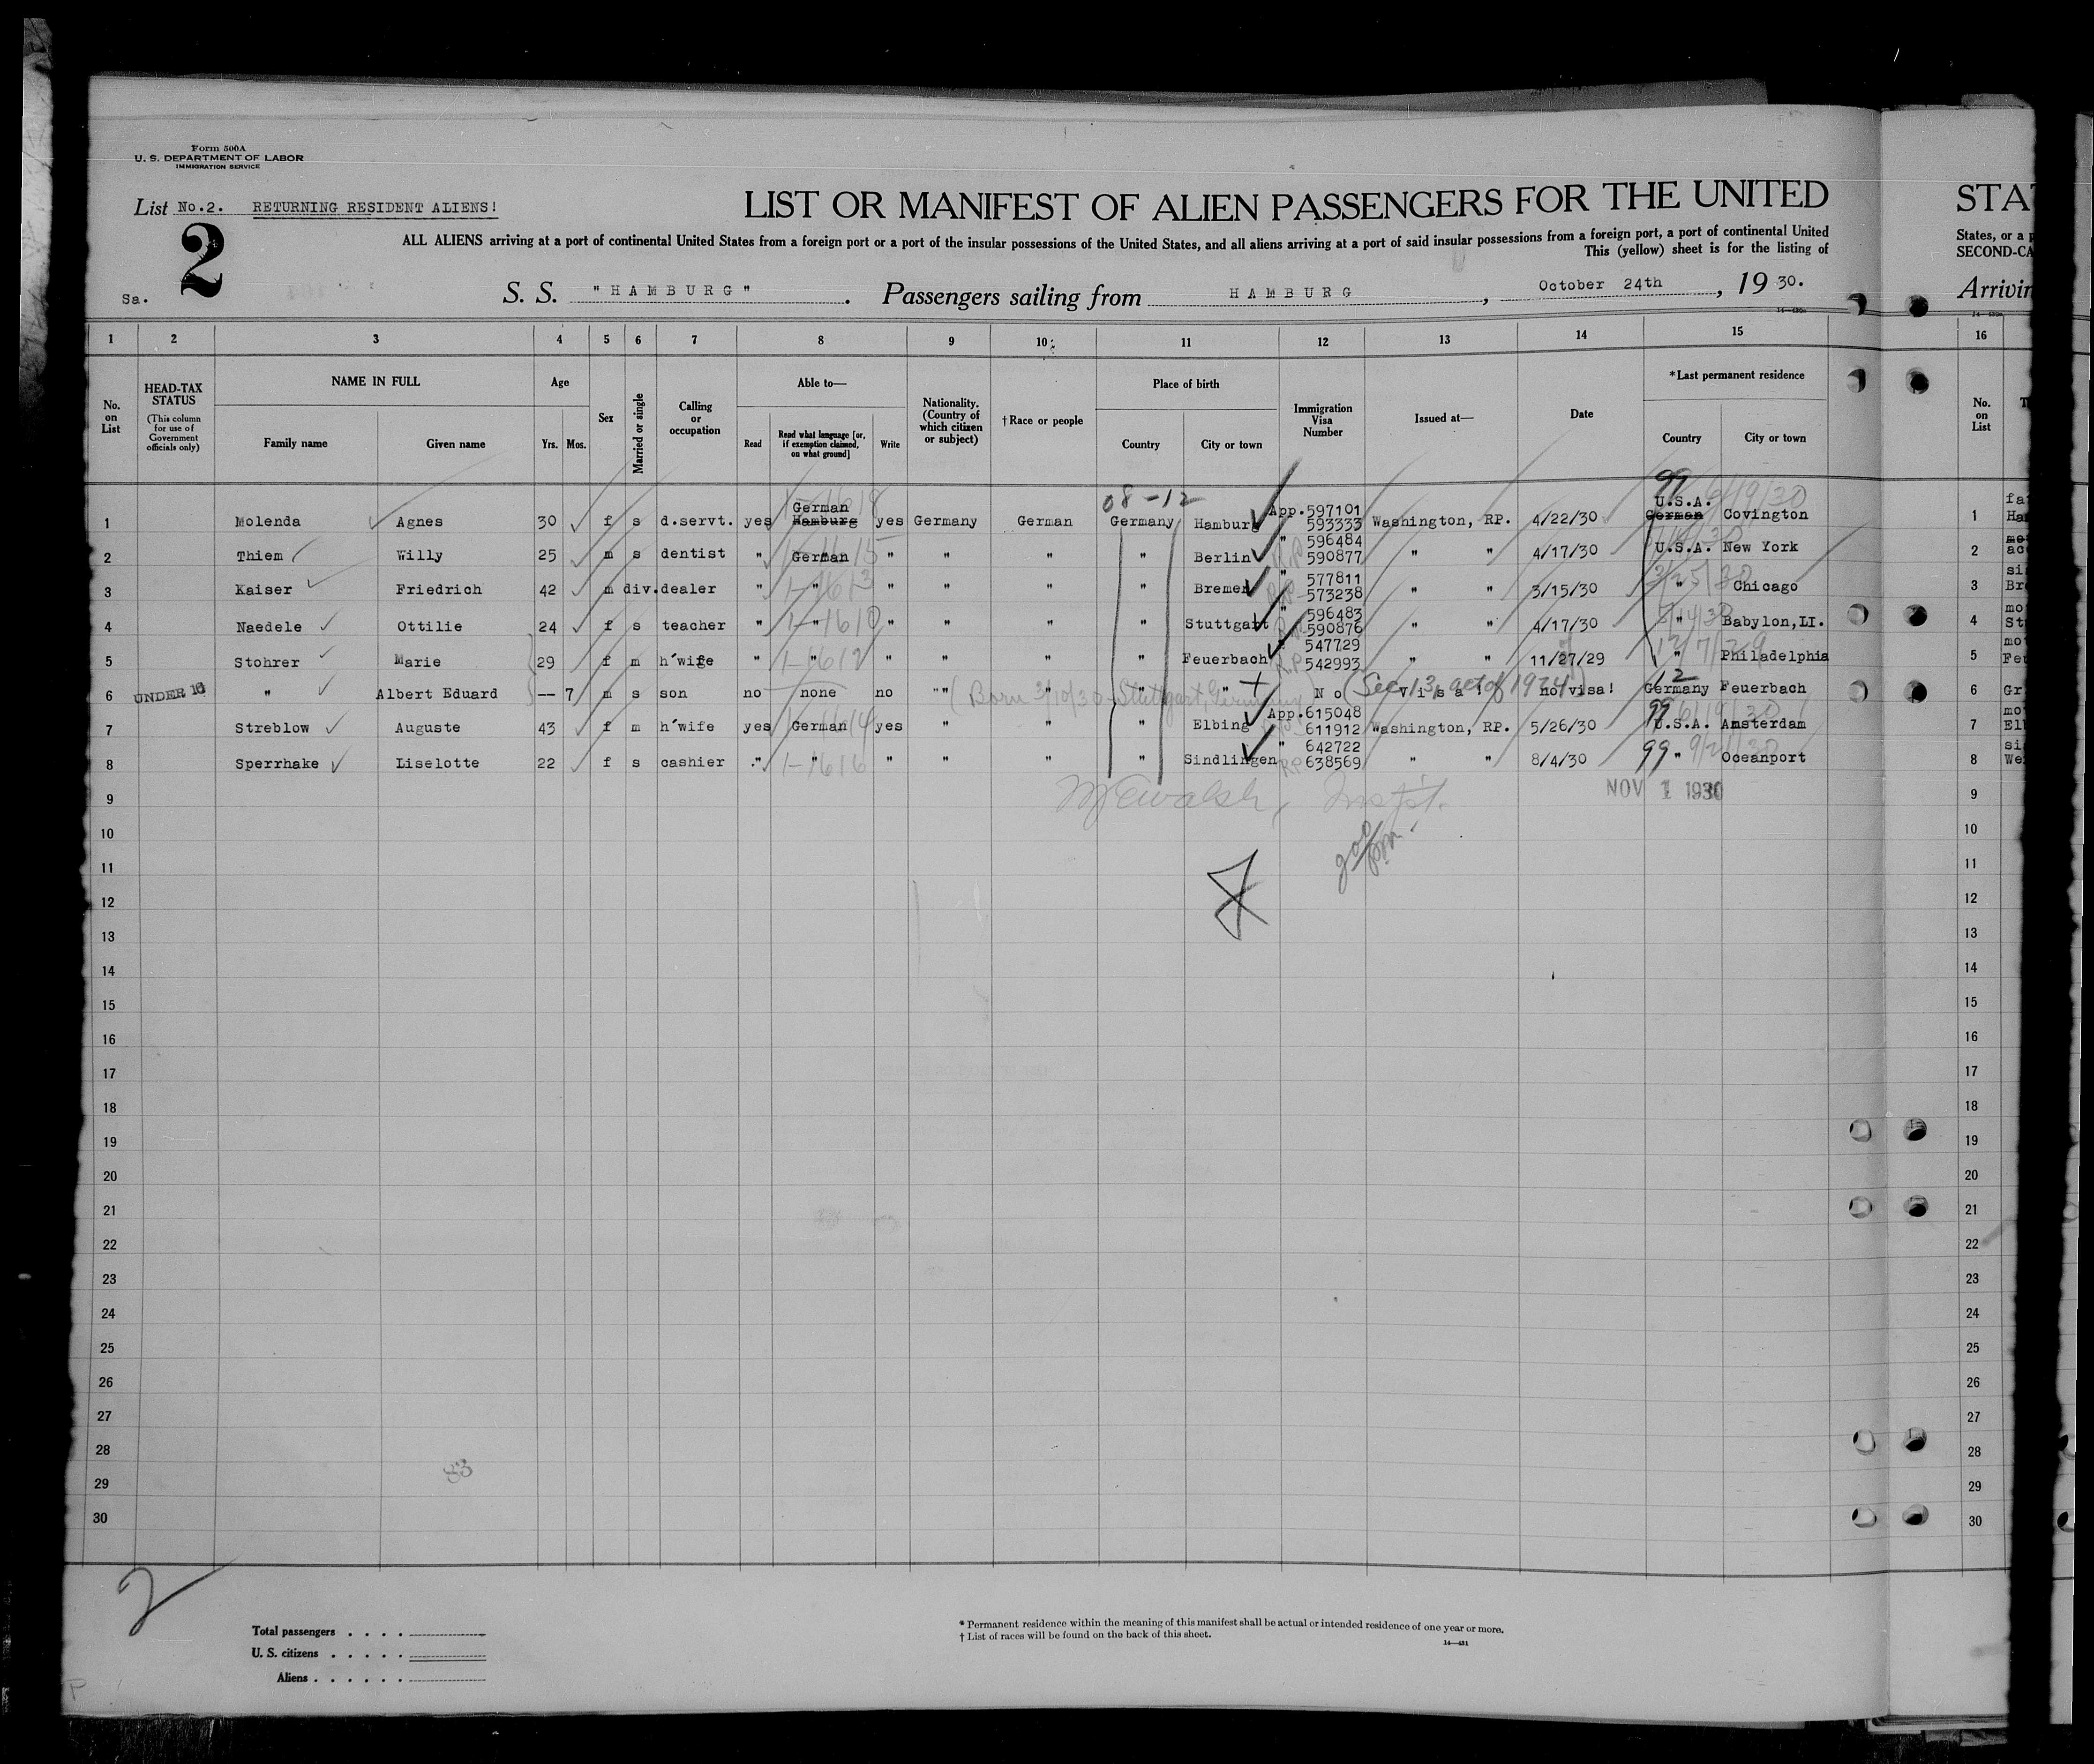 Form 500A
U. S. DEPARTMENT OF LABOR
IMMIGRATION SERVICE
List No.2. RETURNING RESIDENT ALIENS!
LIST OR MANIFEST OF ALIEN PASSENGERS FOR THE UNITED
STA
2
ALL ALIENS arriving at a port of continental United States from a foreign port or a port of the insular possessions of the United States, and all aliens arriving at a port of said insular possessions from a foreign port, a port of continental United
States, or a p
This (yellow) sheet is for the listing of
SECOND-CA
Sa.
S. S. "HAMBURG". Passengers sailing from HAMBURG, October 24th, 19 30.
Arrivin
1 2 3 4 5 6 7 8 9 10 11 12 13 14 15 16
No. on List
HEAD-TAX STATUS
(This column for use of Government officials only)
NAME IN FULL
Family name
Given name
Age
Yrs. Mos.
Sex
Married or single
Calling or occupation
Able to—
Read
Read what language [or, if exemption claimed, on what ground]
Write
Nationality. (Country of which citizen or subject)
†Race or people
Place of birth
Country
City or town
Immigration Visa Number
Issued at—
Date
*Last permanent residence
Country
City or town
No. on List
08-12
99
1 Molenda Agnes 30 f s d.servt. yes German Hamburg yes Germany German Germany Hamburg App.597101 593333 Washington, RP. 4/22/30 U.S.A. German Covington 1 fa Ha
2 Thiem Willy 25 m s dentist " German " " " " Berlin " 596484 590877 " " 4/17/30 U.S.A. New York 2 mo ac
3 Kaiser Friedrich 42 m div. dealer " " " " " " Bremen " 577811 573238 " " 3/15/30 " Chicago 3 si Br
4 Naedele Ottilie 24 f s teacher " " " " " " Stuttgart " 596483 590876 " " 4/17/30 " Babylon,LI. 4 mo St
5 Stohrer Marie 29 f m h'wife " " " " " " Feuerbach " 547729 542993 " " 11/27/29 " Philadelphia 5 mo Feu
UNDER 16
6 " Albert Eduard -- 7 m s son no none no "" " " " No Visa! no visa! Germany Feuerbach 6 Gr
(Born 3/10/30 - Stuttgart, Germany) (Sec. 13, act of 1924) 12
7 Streblow Auguste 43 f m h'wife yes German yes " " " Elbing App.615048 611912 Washington, RP. 5/26/30 99 U.S.A. Amsterdam 7 mo El
8 Sperrhake Liselotte 22 f s cashier " " " " " " Sindlingen " 642722 638569 " " 8/4/30 99 " Oceanport 8 si We
NOV 1 1930
9 9
10 10
11 11
12 12
13 13
14 14
15 15
16 16
17 17
18 18
19 19
20 20
21 21
22 22
23 23
24 24
25 25
26 26
27 27
28 28
83
29 29
30 30
2
Total passengers . . . .
U. S. citizens . . . . .
Aliens . . . . . .
* Permanent residence within the meaning of this manifest shall be actual or intended residence of one year or more.
† List of races will be found on the back of this sheet.
14—431